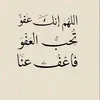 اللهم إنك عفو
تُحب العفو
فاعْفُ عنّا